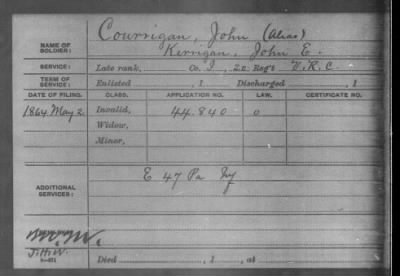 Courrigan, John (Alias)
NAME OF SOLDIER: Kerrigan, John E.
SERVICE: Late rank, Co. I, 20 Reg't V.R.C.
TERM OF SERVICE: Enlisted , 1 Discharged , 1
DATE OF FILING. CLASS. APPLICATION NO. LAW. CERTIFICATE NO.
1864 May 2 Invalid, 44.840 0
Widow,
Minor,
ADDITIONAL SERVICES: E 47 Pa
Died , 1 , at